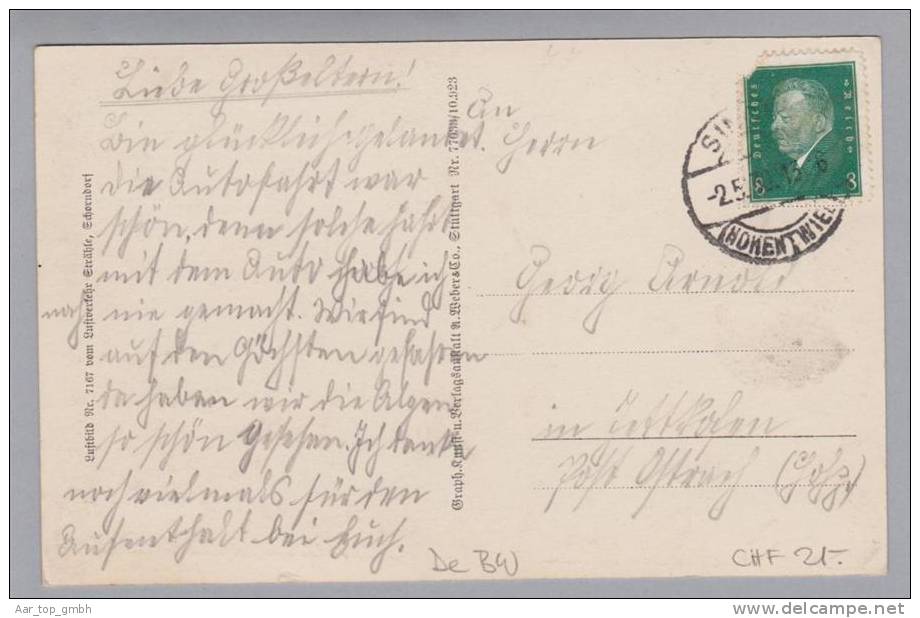 Liebe Großeltern!
Bin glücklich gelandet.
Die Autofahrt war
schön, denn solche Fahrt
mit dem Auto habe ich
noch nie gemacht. Wir sind
auf den Höchsten gefahren
da haben wir die Alpen
so schön gesehen. Ich danke
noch vielmals für den
Aufenthalt bei Euch.
Luftbild Nr. 7167 vom Luftverkehr Strähle, Schorndorf
Graph. Kunst- u. Verlagsanstalt A. Weber & Co., Stuttgart Nr. 770m/10.923
An
Herrn
Georg Arnold
in
Post Ostrach (Hohz.)
Deutsches
Reich
8 8
-2.5.
(HOHENTWIEL)
De BW
CHF 21.-
Aar_top_gmbh
www.delcampe.net